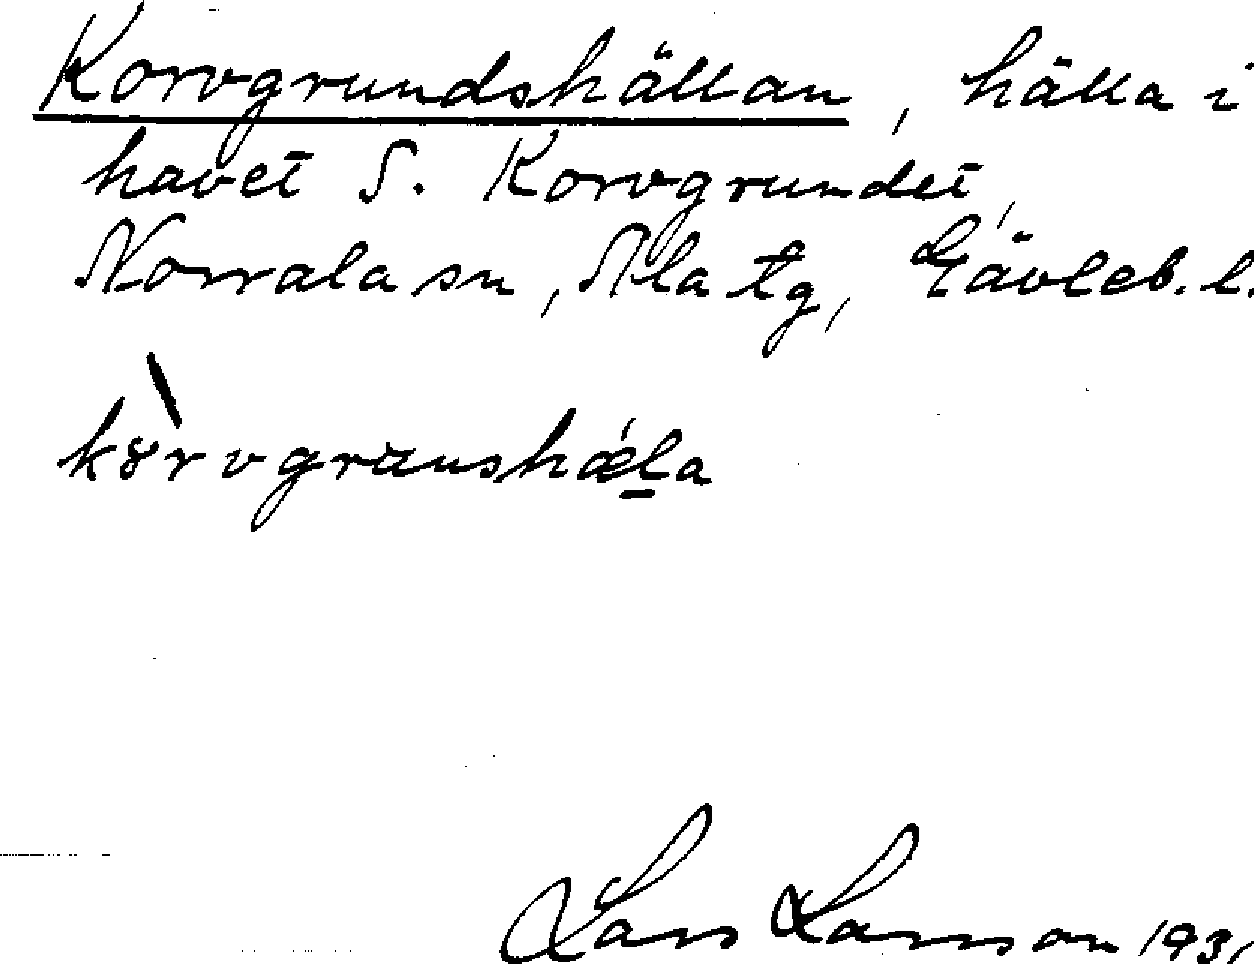 Korvgrundshällan, hälla i
havet S. Korvgrundet,
Norrala sn, Ala tg, Gävleb. l.
kȣrvgrunshǽla
Lars Larsson 1931